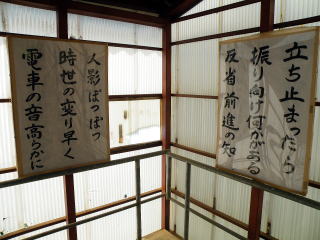 立ち止まったら
振り向け何かがある
反省前進の知
人影ぽつぽつ
時世の変り早く
電車の音高らかに